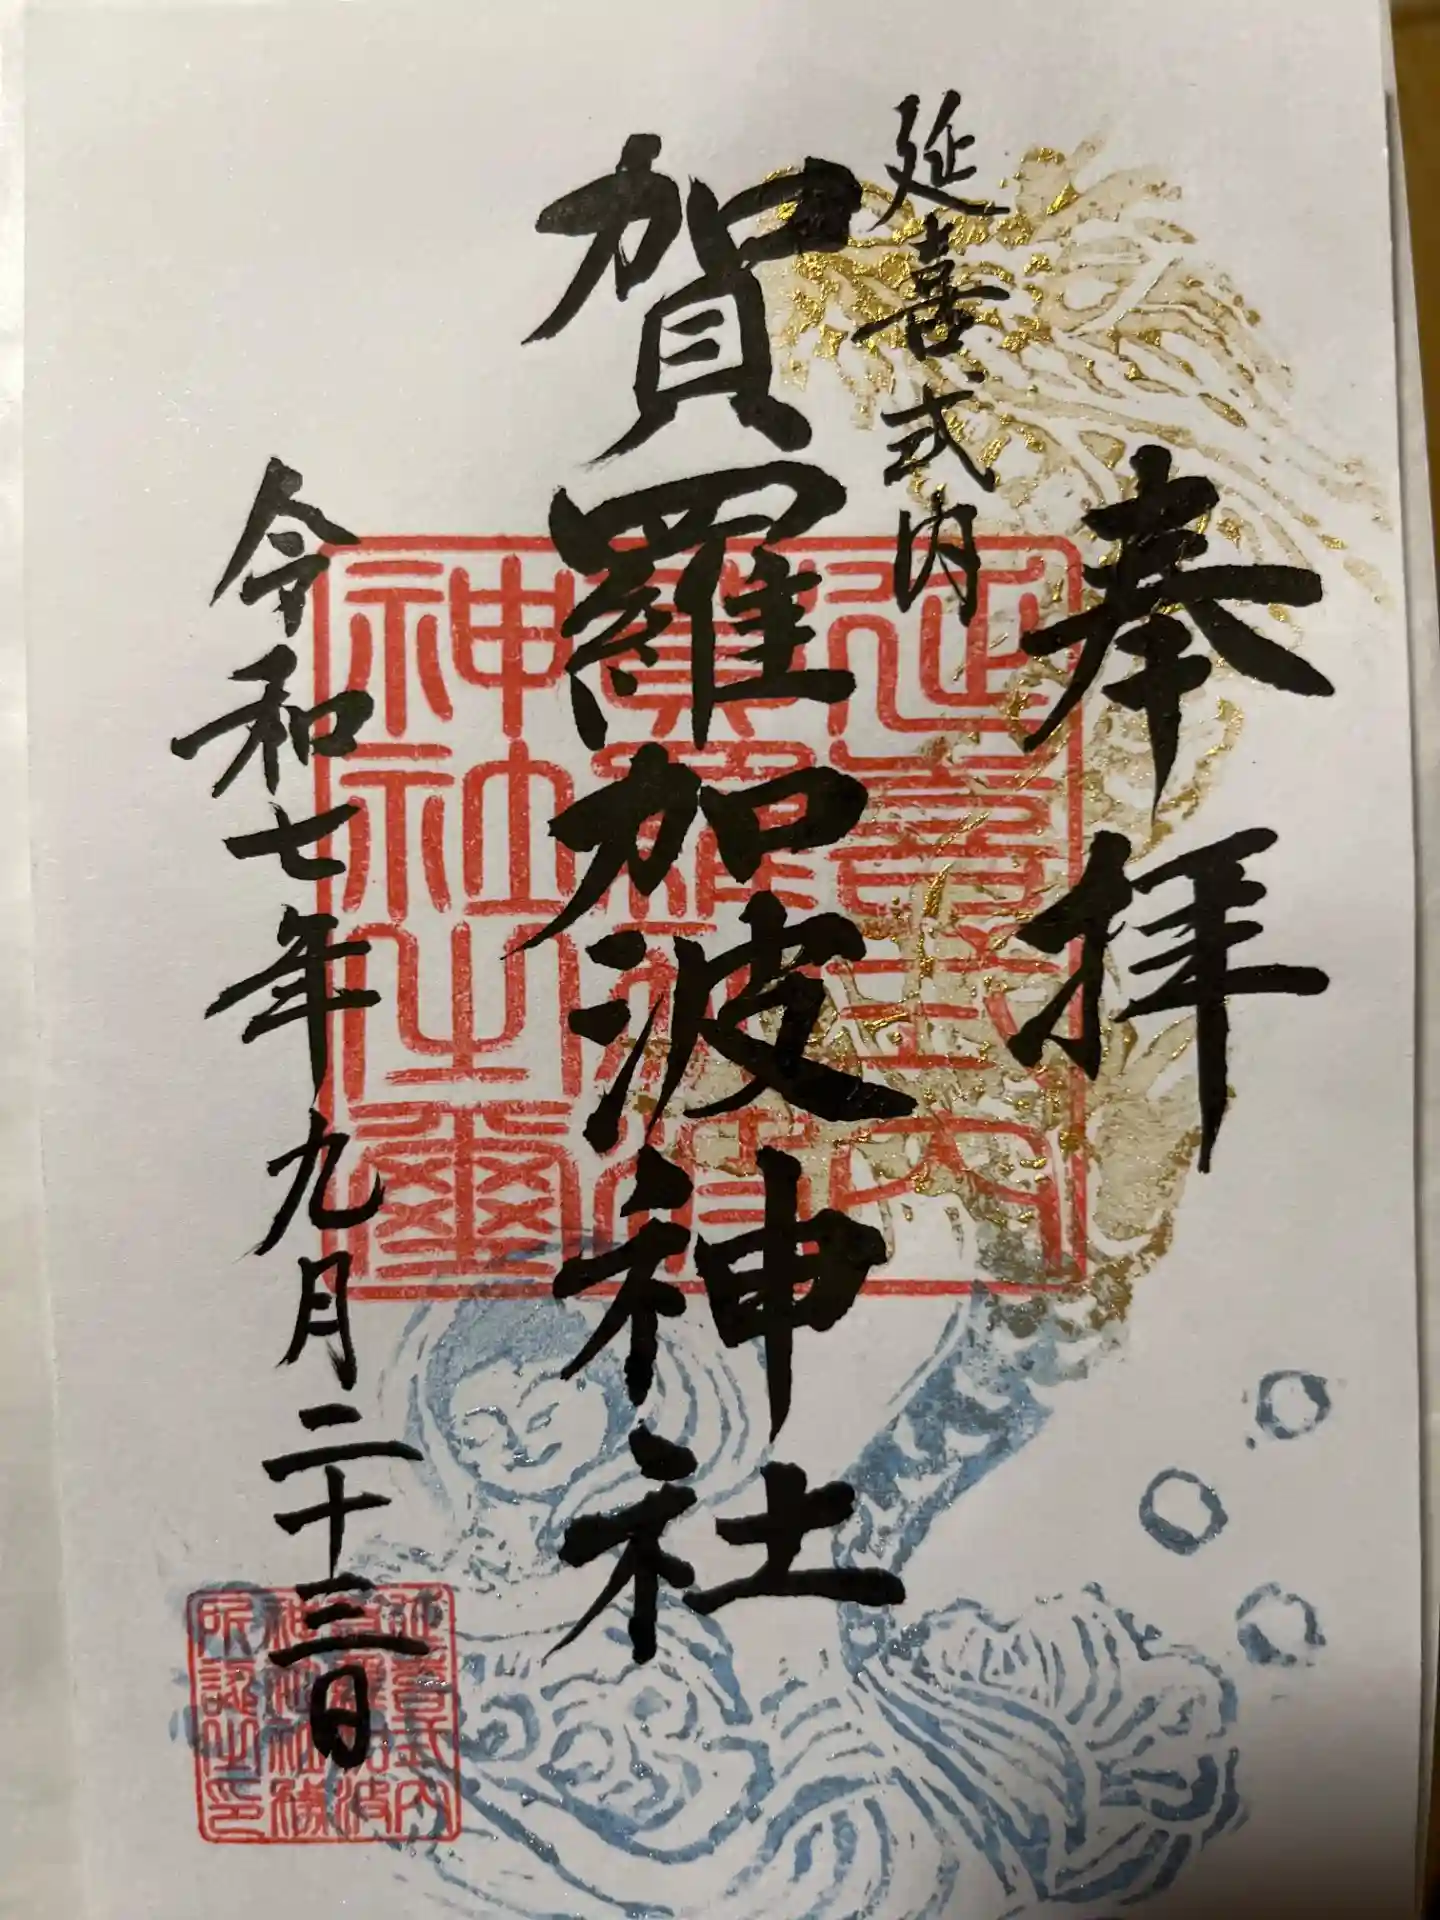 奉拝
延喜式内
賀羅加波神社
令和七年九月二十三日
延喜式内
賀羅加波
神社之璽
延喜式内
賀羅加波
神社務
所認之印